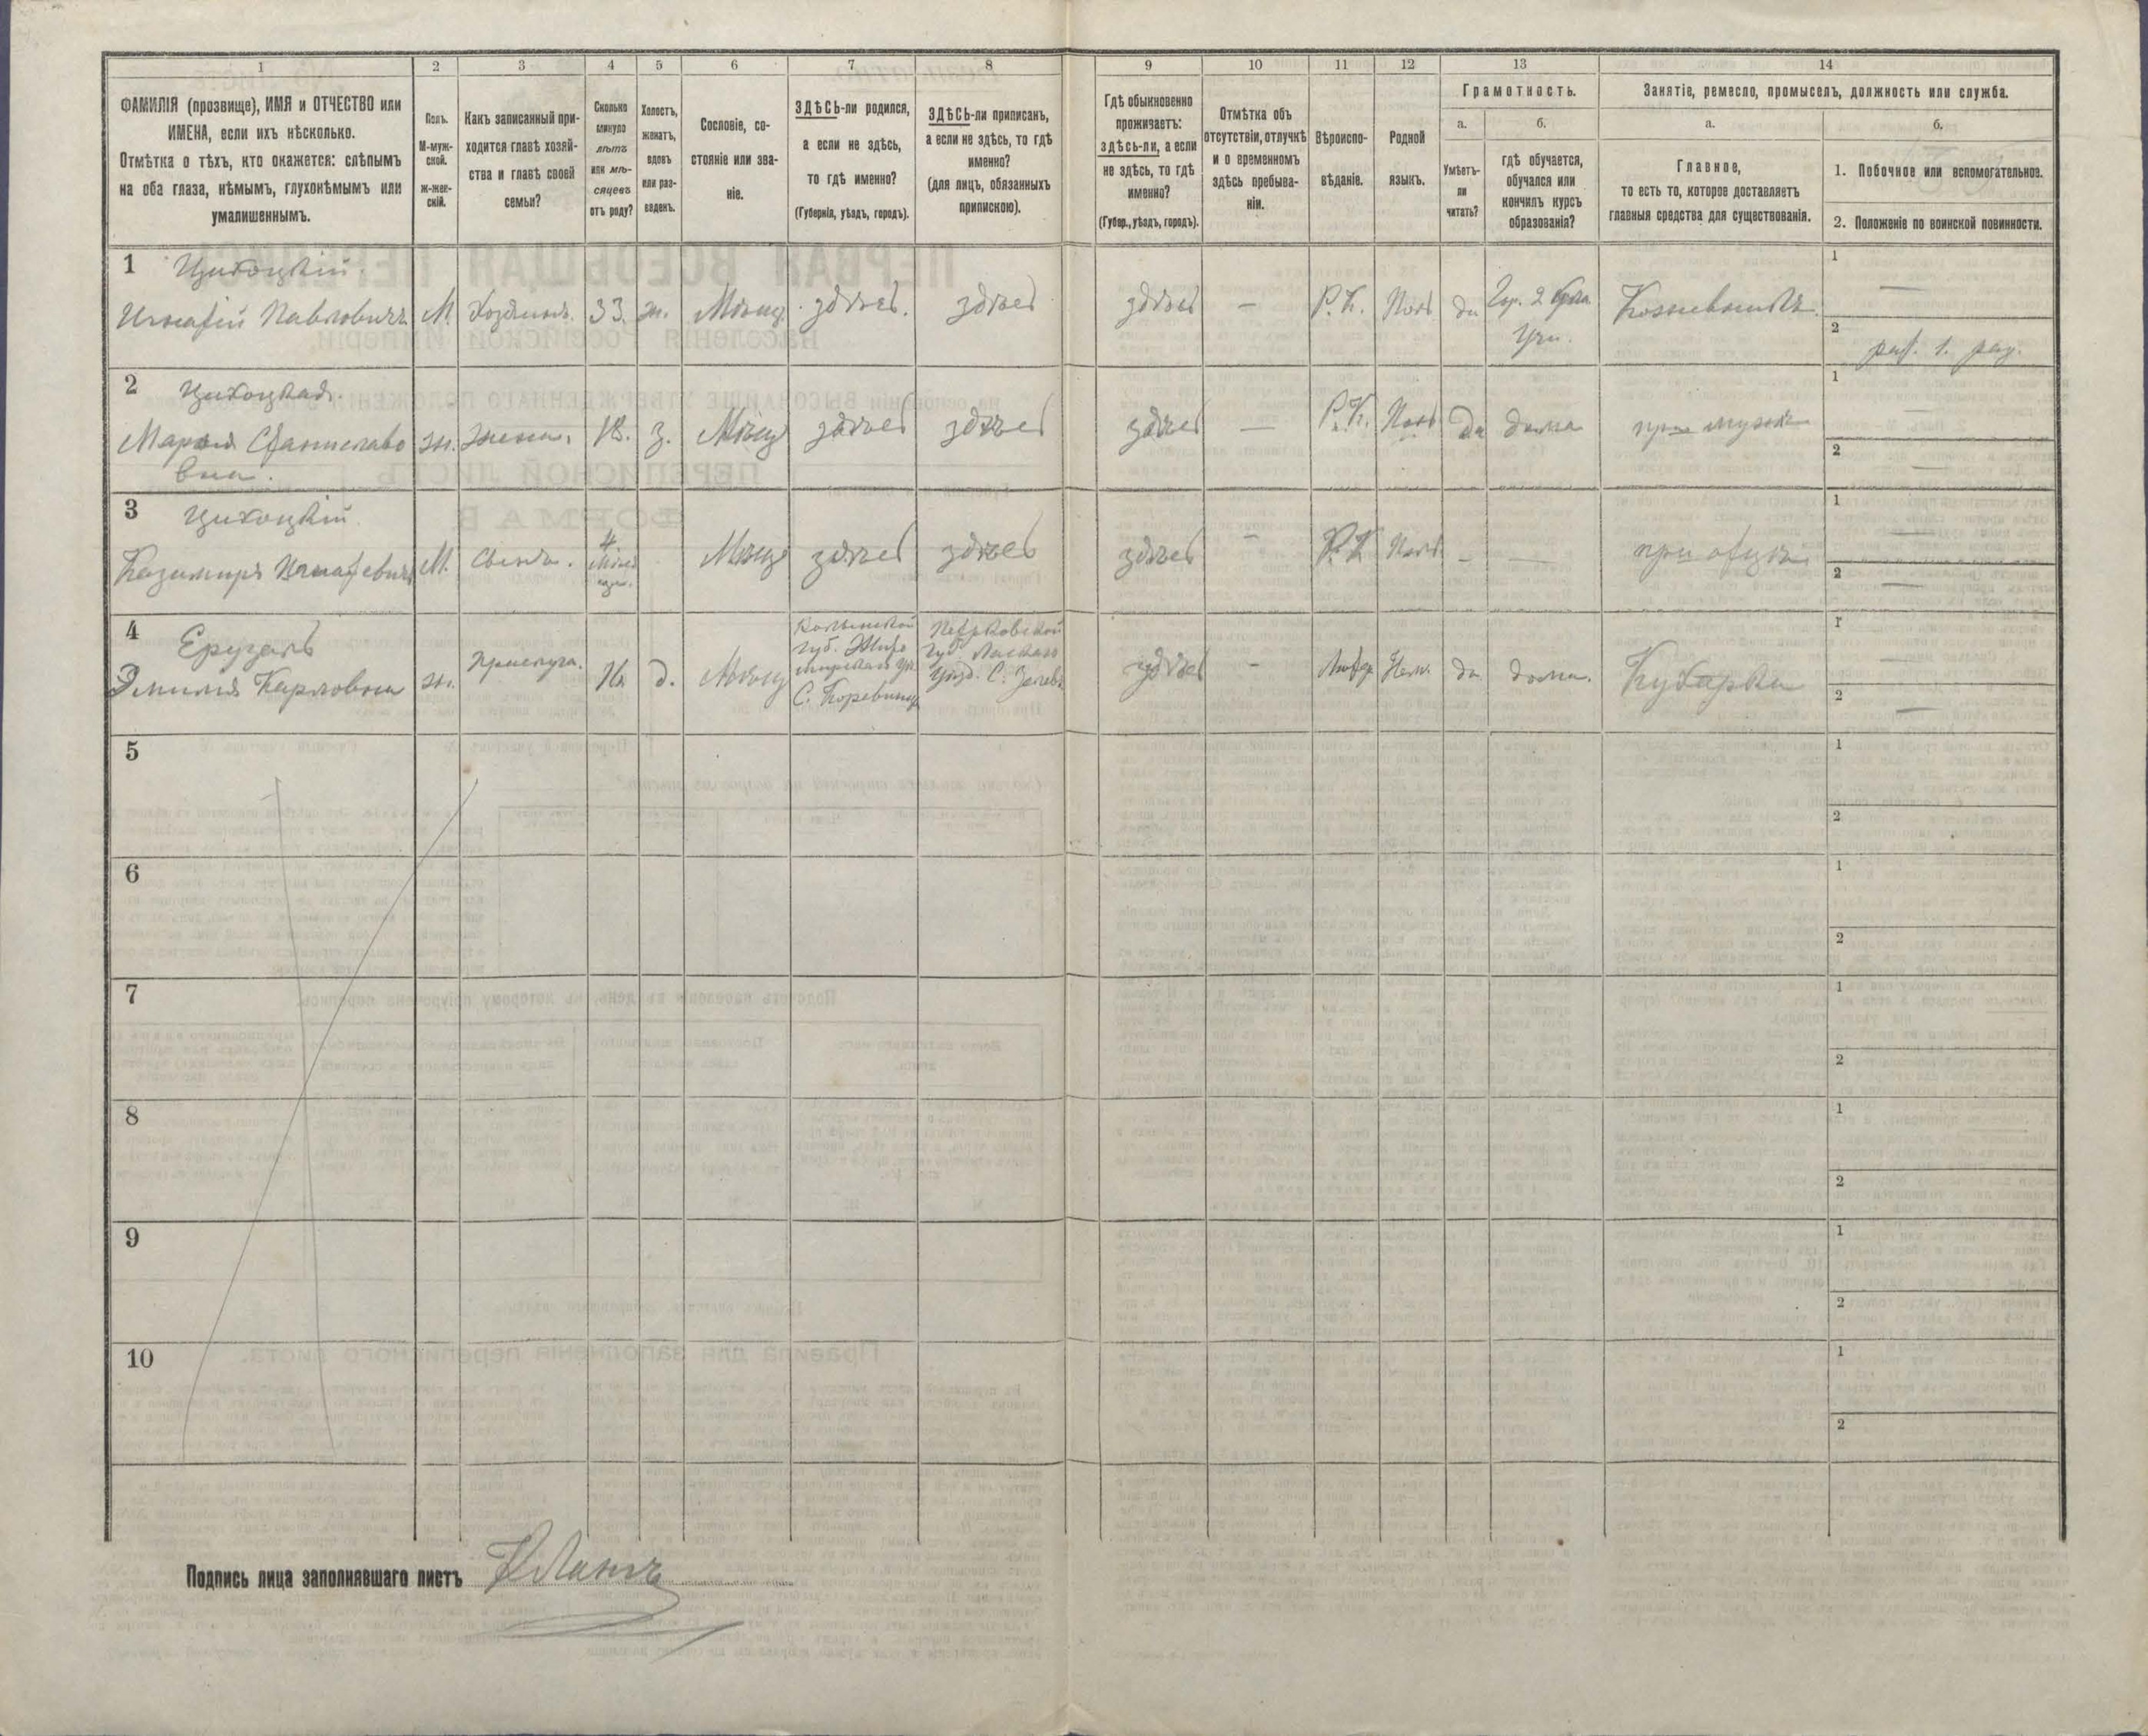 1 2 3 4 5 6 7 8 9 10 11 12 13 14
ФАМИЛІЯ (прозвище), ИМЯ и ОТЧЕСТВО или
ИМЕНА, если ихъ нѣсколько.
Отмѣтка о тѣхъ, кто окажется: слѣпымъ
на оба глаза, нѣмымъ, глухонѣмымъ или
умалишеннымъ.
Полъ.
М-муж-
ской.
Ж-жен-
скій.
Какъ записанный при-
ходится главѣ хозяй-
ства и главѣ своей
семьи?
Сколько
минуло
лѣтъ
или мѣ-
сяцевъ
отъ роду?
Холостъ,
женатъ,
вдовъ
или раз-
веденъ.
Сословіе, со-
стояніе или зва-
ніе.
ЗДѢСЬ-ли родился,
а если не здѣсь,
то гдѣ именно?
(Губернія, уѣздъ, городъ).
ЗДѢСЬ-ли приписанъ,
а если не здѣсь, то гдѣ
именно?
(для лицъ, обязанныхъ
припискою).
Гдѣ обыкновенно
проживаетъ:
здѣсь-ли, а если
не здѣсь, то гдѣ
именно?
(Губер., уѣздъ, городъ).
Отмѣтка объ
отсутствіи, отлучкѣ
и о временномъ
здѣсь пребыва-
ніи.
Вѣроиспо-
вѣданіе.
Родной
языкъ.
Грамотность.
а.
Умѣетъ-
ли
читать?
б.
гдѣ обучается,
обучался или
кончилъ курсъ
образованія?
Занятіе, ремесло, промыселъ, должность или служба.
а.
Главное,
то есть то, которое доставляетъ
главныя средства для существованія.
б.
1. Побочное или вспомогательное.
2. Положеніе по воинской повинности.
1 Цихоцкій.
Игнатій Павловичъ М. Хозяинъ. 33. ж. Мѣщ. здѣсь. здѣсь здѣсь — Р.К. Поль да Гор. 2 Кла. Кожевникъ. 1 —
Учи. 2 рат. 1. раз.
2 Цихоцкая.
Марья Станиславо ж. жена. 18. з. Мѣщ здѣсь здѣсь здѣсь — Р.К. Поль да дома при мужѣ 1 —
вна. 2 —
3 Цихоцкій.
Казиміръ Игнатьевичъ М. Сынъ. 4 Мѣщ здѣсь здѣсь здѣсь — Р.К Поль — — при отцѣ 1 —
2 —
4 Ерузаль
Эмилія Карловна ж. Прислуга. 16 д. Мѣщ
губ.
С.
Петрковской
Губ Ласкаго
Уѣзд. С.
здѣсь — Лютер Нем. да дома. Кухарка 1 —
2 —
5 1
2
6 1
2
7 1
2
8 1
2
9 1
2
10 1
2
Подпись лица заполнявшаго листъ